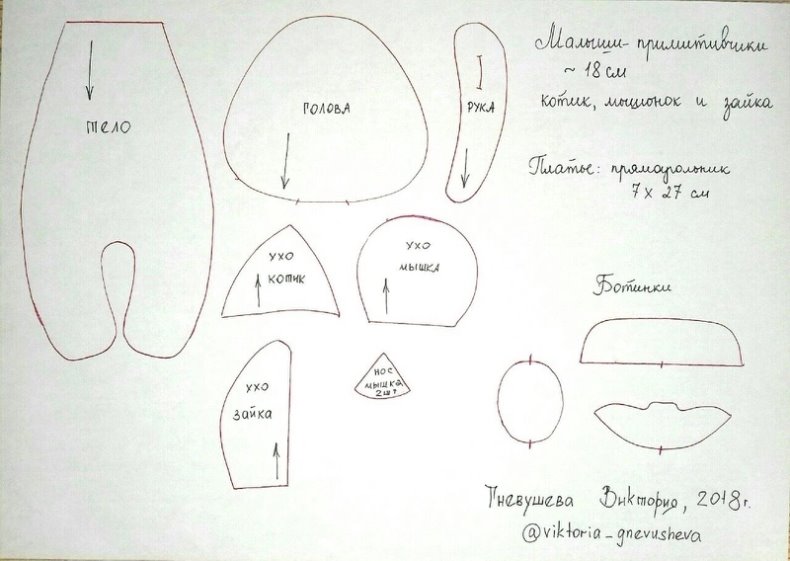 тело
голова
рука
Малыши-примитивчики
~ 18 см
котик, мышонок и зайка
Платье: прямоугольник
7 х 27 см
ухо
котик
ухо
мышка
Ботинки
ухо
зайка
нос
мышка
2 шт
Гневушева Виктория, 2018 г.
@viktoria_gnevusheva